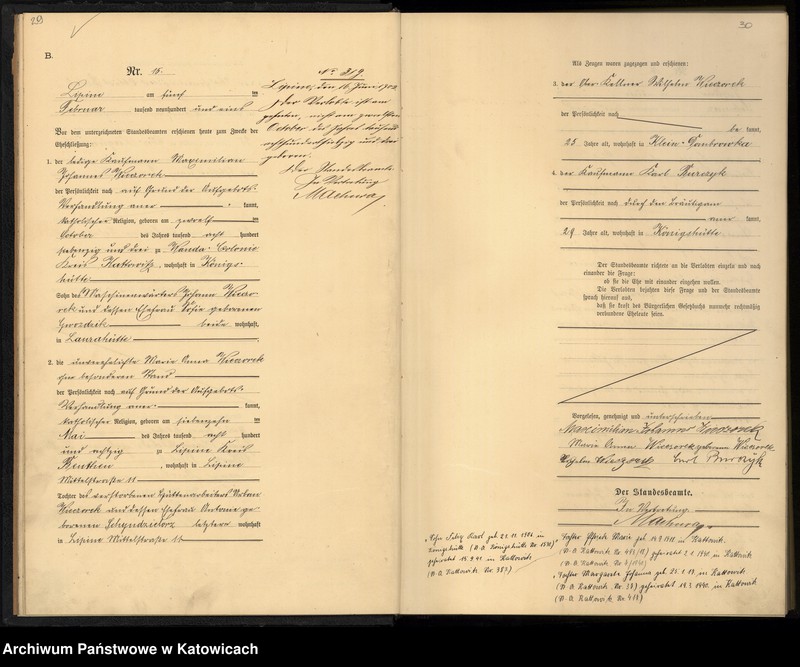 29
B.
Nr. 15.
Lipine am fünf ten
Februar tausend neunhundert und eins
Vor dem unterzeichneten Standesbeamten erschienen heute zum Zwecke der
Eheschließung:
1. der ledige Kaufmann Maximilian
Johannes Wieczorek
der Persönlichkeit nach auf Grund der Aufgebots-
Verhandlung aner- kannt,
katholischer Religion, geboren am zwölften
October des Jahres tausend acht hundert
siebenzig und drei zu Wanda-Colonie
Kreis Kattowitz, wohnhaft in Königs-
hütte
Sohn des Maschinenwärters Johann Wieczo-
rek und dessen Ehefrau geborenen
beide wohnhaft
in Laurahütte
2. die unverehelichte Marie Anna Wieczorek
ohne besonderen Stand
der Persönlichkeit nach auf Grund der Aufgebots-
Verhandlung aner- kannt,
katholischer Religion, geboren am siebenzehn ten
Mai des Jahres tausend acht hundert
und achtzig zu Lipine Kreis
Beuthen, wohnhaft in Lipine
Mittelstrasse 11
Tochter des verstorbenen Hüttenarbeiters
Wieczorek und dessen Ehefrau Antonie ge-
borenen letztere wohnhaft
in Lipine Mittelstrasse 11
No 219
Lipine, den 16. Juni 1902
der Verlobte ist am
geboren, nicht am zwölften
October des Jahres tausend
achthundertsiebzig und drei
geboren.
Der Standesbeamte
In Vertretung
30
Als Zeugen waren zugezogen und erschienen:
3. der Ober-Kellner Wilhelm Wieczorek
der Persönlichkeit nach
be kannt,
25 Jahre alt, wohnhaft in Klein-Dombrowka
4. der Kaufmann Karl Burczyk
der Persönlichkeit nach durch den Bräutigam
aner kannt,
29 Jahre alt, wohnhaft in Königshütte
Der Standesbeamte richtete an die Verlobten einzeln und nach
einander die Frage:
ob sie die Ehe mit einander eingehen wollen.
Die Verlobten bejahten diese Frage und der Standesbeamte
sprach hierauf aus,
daß sie kraft des Bürgerlichen Gesetzbuchs nunmehr rechtmäßig
verbundene Eheleute seien.
Vorgelesen, genehmigt und unterschrieben
Maximilian Johannes Wieczorek
Marie Anna Wieczorek geborene Wieczorek
Wilhelm Wieczorek Carl Burczyk
Der Standesbeamte.
In Vertretung.
Karl geb. 22.11.1906 in
Königshütte (St. A. Königshütte Nr.
geheiratet in Kattowitz
(St. A. Kattowitz Nr. 383)
Tochter Marie geb. in Kattowitz
(St. A. Kattowitz Nr. geheiratet 2.1.1940 in Kattowitz
(St. A. Kattowitz Nr.
Tochter Margarete Johanna geb. 25.1.13 in Kattowitz
(St. A. Kattowitz Nr. 38) geheiratet 1940 in Kattowitz
(St. A. Kattowitz Nr. 418)
Archiwum Państwowe w Katowicach